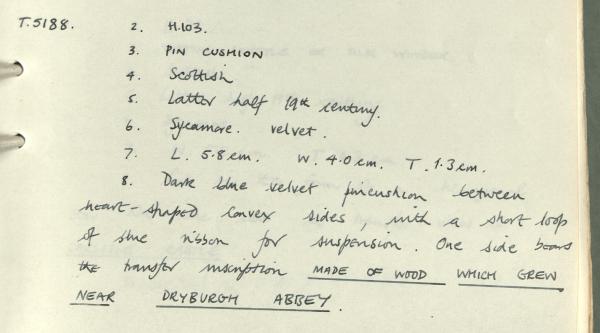 T.5188. 2. H.103.
3. PIN CUSHION
4. Scottish
5. Latter half 19th century.
6. Sycamore. velvet.
7. L. 5.8cm. W. 4.0cm. T. 1.3cm.
8. Dark blue velvet pincushion between
heart-shaped convex sides, with a short loop
of blue ribbon for suspension. One side bears
the transfer inscription MADE OF WOOD WHICH GREW
NEAR DRYBURGH ABBEY.